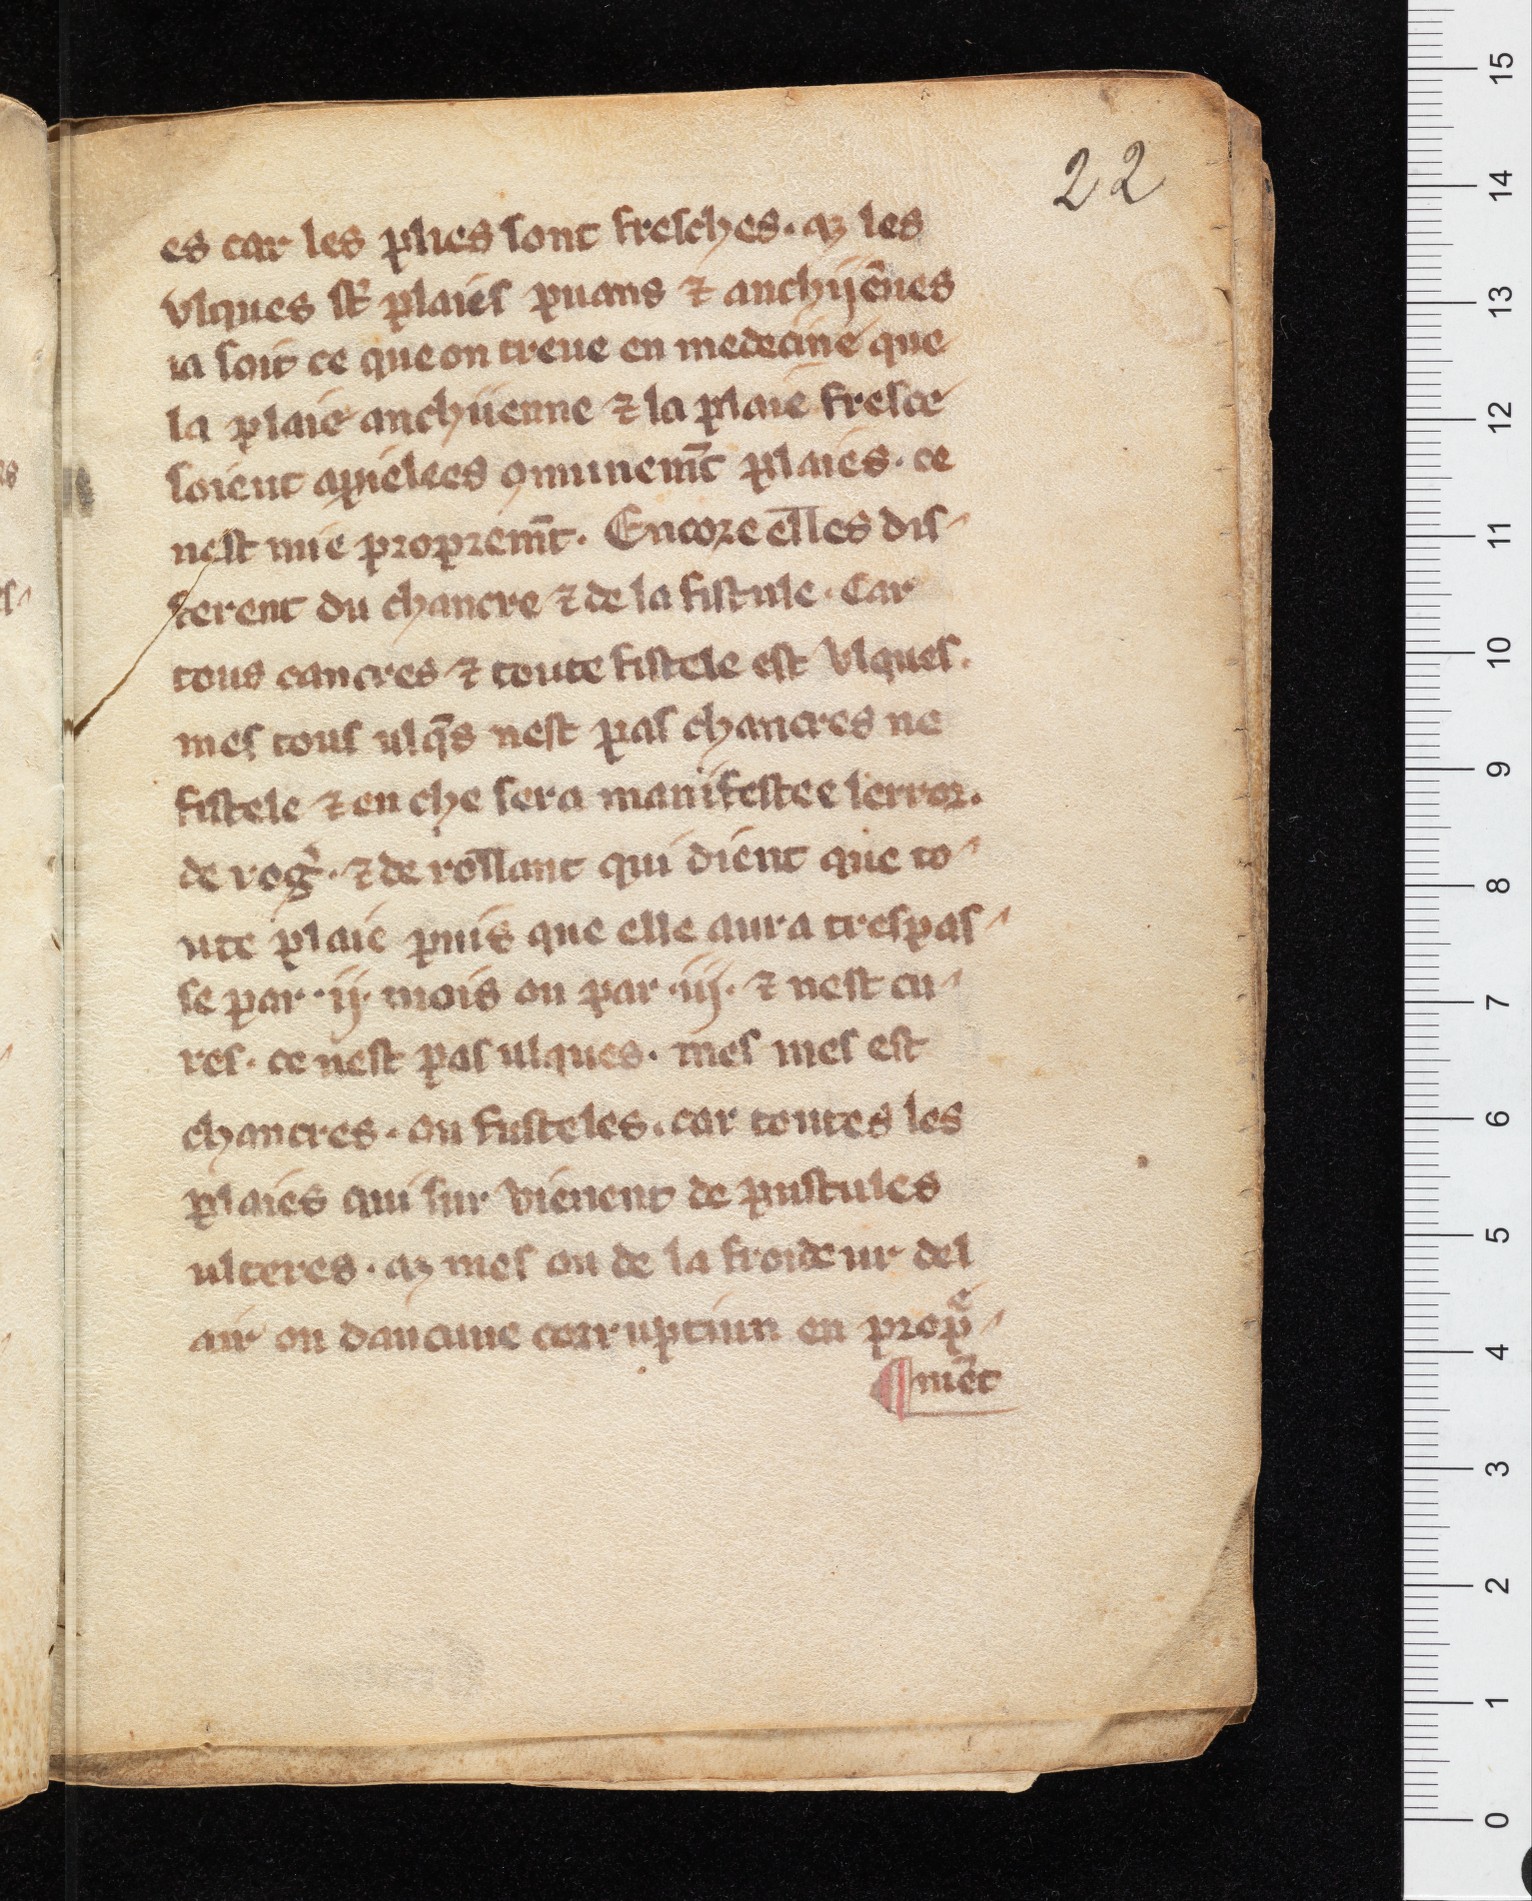 22
es car les plies sont fresches. az les
vlques st̄ plaies puans ⁊ anchijēnes
ia soit ce que on treue en medecine que
la plaie anchiienne ⁊ la plaie fresce
soient apielees ꝯmunemt̄ plaies. ce
nest mie propremt̄. Encore ell̄es dif
ferent du chancre ⁊ de la fistule. Car
tous cancres ⁊ toute fistele est vlques.
mes tous ulq̄s nest pas chancres ne
fistele ⁊ en che sera manifestee lerror.
de rog̉. ⁊ de roll̄ant qui dient que to
ute plaie puis que elle aura trespas
se par .ij. mois ou par .iij. ⁊ nest cu
res. ce nest pas ulques. mes mes est
chancres. ou fusteles. car toutes les
plaies qui sur vienent de pustules
ulteres. az mes ou de la froideur del
air ou daucune corruptiun en propͤ
mēt
15
14
13
12
11
10
9
8
7
6
5
4
3
2
1
0